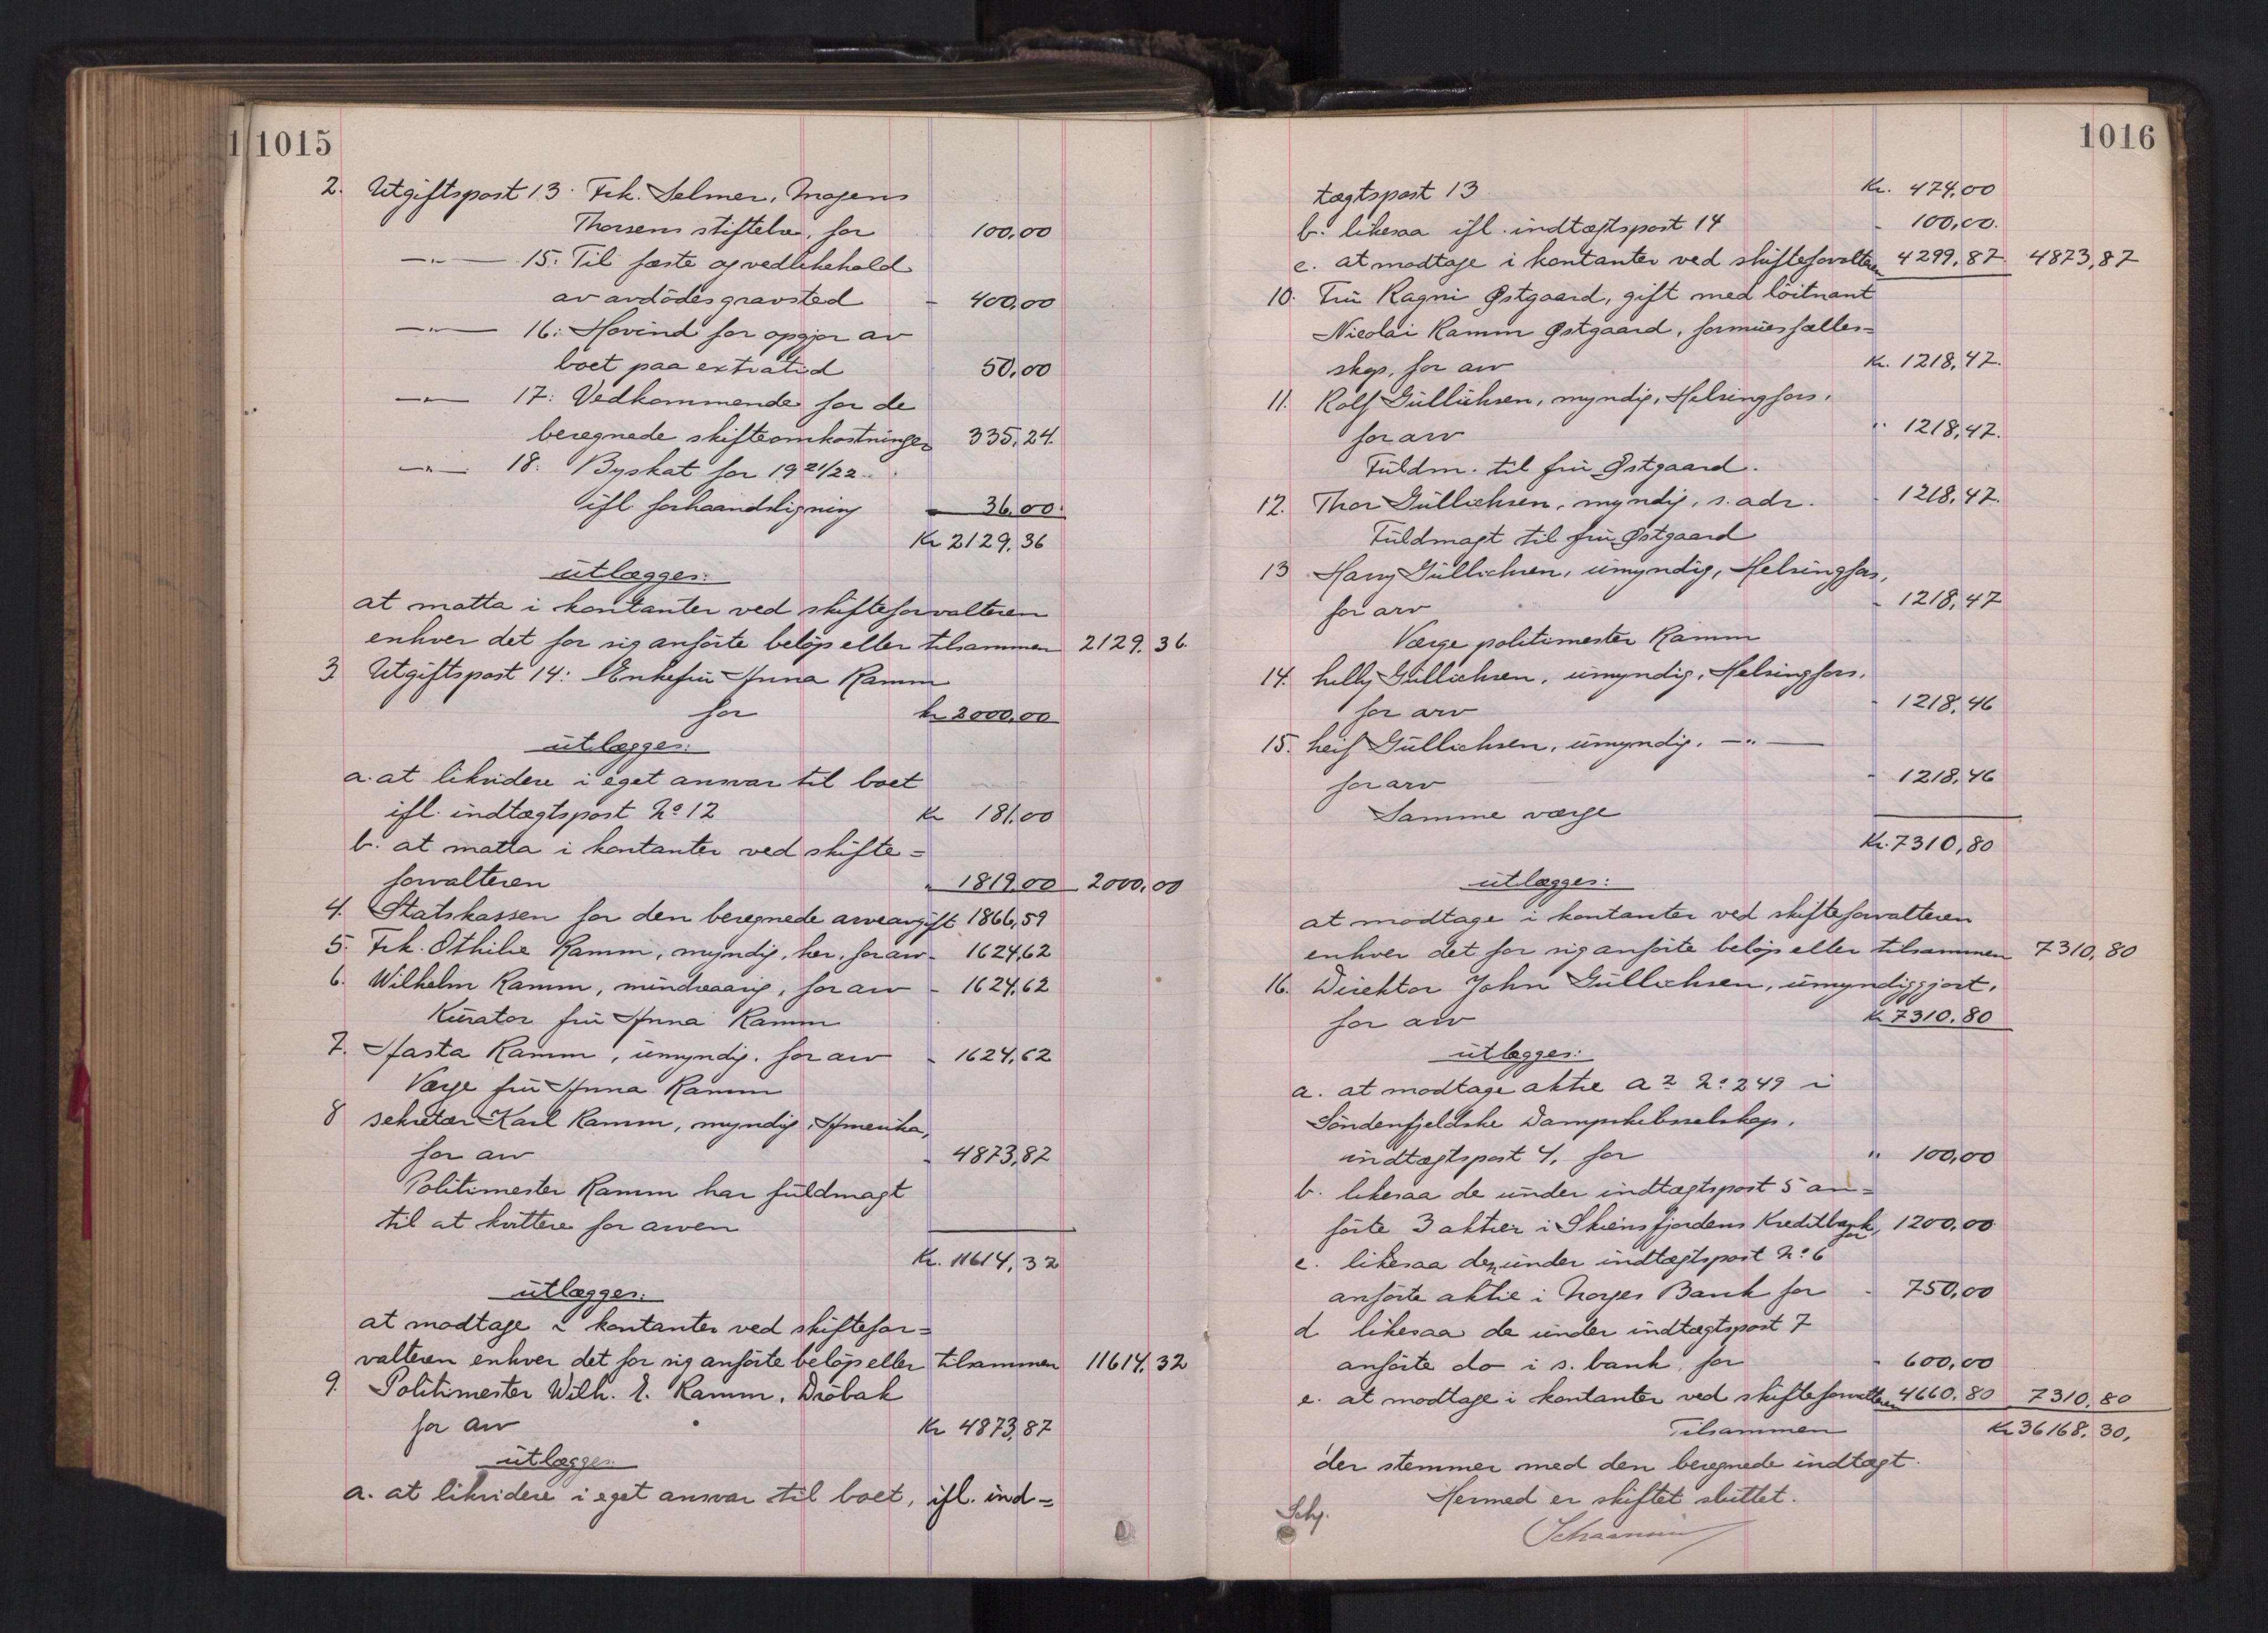 1015
2. Utgiftspost 13. Frk. Selmer, Mogens
Thorsens stiftelse, for - 100,00
—"— 15: Til fæste og vedlikehold
av avdödes gravsted - 400,00
—"— 16: Hovind for opgjør av
boet paa extratid 50,00
—"— 17: Vedkommende for de
beregnede skifteomkostninger 335,24.
—"— 18: Byskat for 19 21/22
ifl forhaandsligning - 36,00.
Kr 2129,36
utlægges:
at motta i kontanter ved skifteforvalteren
enhver det for sig anförte belöp eller tilsammen 2129.36.
3 Utgiftspost 14: Enkefru Anna Ramm
for kr 2000,00
utlægges:
a. at likvidere i eget ansvar til boet
ifl. indtægtspost No 12 Kr 181,00
b. at motta i kontanter ved skifte=
forvalteren " 1819,00 2000,00
4. Statskassen for den beregnede arveavgift 1866,59
5. Frk. Othilie Ramm, myndig, her, for arv - 1624,62
6. Wilhelm Ramm, mindreaarig, for arv - 1624,62
Kurator fru Anna Ramm
7. Aasta Ramm, umyndig. for arv - 1624,62
Værge fru Anna Ramm
8 sekretær Karl Ramm, myndig, Amerika,
for arv - 4873,87
Politimester Ramm har fuldmagt
til at kvittere for arven
Kr. 11614,32
utlægges:
at modtage i kontanter ved skiftefor=
valteren enhver det for sig anförte belöp eller tilsammen 11614.32
9. Politimester Wilh. E. Ramm, Dröbak
for arv Kr 4873,87
utlægges:
a. at likvidere i eget ansvar til boet, ifl. ind=
1016
tægtspost 13 Kr. 474,00
b. likesaa ifl. indtægtspost 14 - 100,00.
c. at modtage i kontanter ved skifteforvalteren 4299,87. 4873,87
10. Fru Ragni Østgaard, gift med löitnant
Nicolai Ramm Østgaard, formuesfælles=
skap, for arv Kr. 1218,47.
11. Rolf Gullichsen, myndig, Helsingfors,
for arv " 1218,47.
Fuldm. til fru Østgaard.
12. Thor Gullichsen, myndig, s. adr. - 1218,47.
Fuldmagt til fru Østgaard
13 Harry Gullichsen, umyndig, Helsingfors,
for arv - 1218,47
Værge politimester Ramm
14. Lilly Gullichsen, umyndig, Helsingfors,
for arv - 1218,46
15. Leif Gullichsen, umyndig, —"—
for arv - 1218,46
Samme værge
Kr. 7310,80
utlægges:
at modtage i kontanter ved skifteforvalteren
enhver det for sig anförte belöp eller tilsammen 7310,80
16. Direktør John Gullichsen, umyndiggjort,
for arv Kr 7310.80
utlægges:
a. at modtage aktie a 2 No 249 i
Söndenfjeldske Dampskibsselskap,
indtægtspost 4, for " 100,00
b. likesaa de under indtægtspost 5 an=
förte 3 aktier i Skiensfjordens Kreditbank, for 1200,00
c. likesaa den under indtægtspost No 6
anförte aktie i Norges Bank for - 750,00
d likesaa de under indtægtspost 7
anförte do i s. bank, for - 600,00
e. at modtage i kontanter ved skifteforvalteren 4660.80 7310,80
Tilsammen Kr 36168.30,
der stemmer med den beregnede indtægt.
Hermed er skiftet sluttet.
Schj.